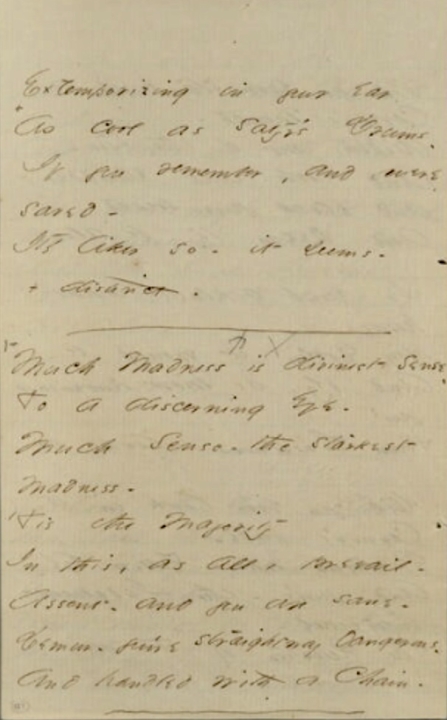 Extemporizing in your Ear
As cool as Satyr's Drums
If you remember, and were
saved -
It's liker so - it seems -
+ distinct -
Much Madness is divinest Sense
To a discerning Eye -
Much Sense - the starkest
Madness -
'Tis the Majority
In this, as All, prevail -
Assent - and you are sane -
Demur - you're straightway dangerous -
And handled with a Chain -